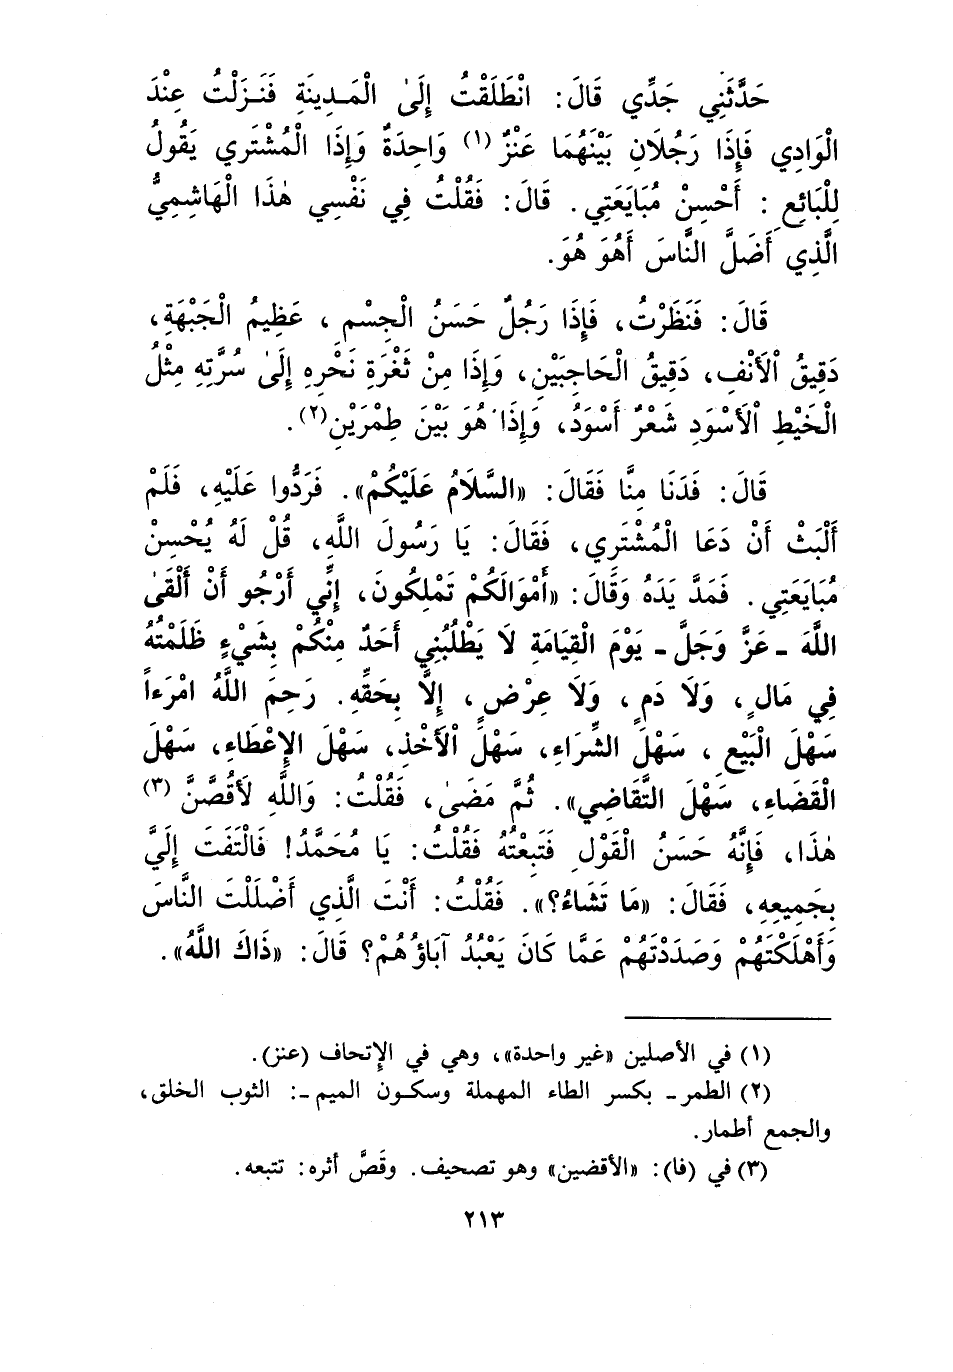 حَدَّثَنِي جَدِّي قَالَ: انْطَلَقْتُ إِلَىٰ الْمَـدِينَةِ فَنَـزَلْتُ عِنْدَ
الْوَادِي فَإِذَا رَجُلَانِ بَيْنَهُمَا عَنْزٌ (١) وَاحِدَةٌ وَإِذَا الْمُشْتَرِي يَقُولُ
لِلْبَائِعِ: أَحْسِنْ مُبَايَعَتِي. قَالَ: فَقُلْتُ فِي نَفْسِي هٰذَا الْهَاشِمِيُّ
الَّذِي أَضَلَّ النَّاسَ أَهُوَ هُوَ.
قَالَ: فَنَظَرْتُ، فَإِذَا رَجُلٌ حَسَنُ الْجِسْمِ، عَظِيمُ الْجَبْهَةِ،
دَقِيقُ الْأَنْفِ، دَقِيقُ الْحَاجِبَيْنِ، وَإِذَا مِنْ ثَغْرَةِ نَحْرِهِ إِلَىٰ سُرَّتِهِ مِثْلُ
الْخَيْطِ الْأَسْوَدِ شَعْرٌ أَسْوَدُ، وَإِذَا هُوَ بَيْنَ طِمْرَيْنِ(٢).
قَالَ: فَدَنَا مِنَّا فَقَالَ: «السَّلَامُ عَلَيْكُمْ». فَرَدُّوا عَلَيْهِ، فَلَمْ
أَلْبَثْ أَنْ دَعَا الْمُشْتَرِي، فَقَالَ: يَا رَسُولَ اللَّهِ، قُلْ لَهُ يُحْسِنْ
مُبَايَعَتِي. فَمَدَّ يَدَهُ وَقَالَ: «أَمْوَالَكُمْ تَمْلِكُونَ، إِنِّي أَرْجُو أَنْ أَلْقَىٰ
اللَّهَ ـ عَزَّ وَجَلَّ ـ يَوْمَ الْقِيَامَةِ لَا يَطْلُبُنِي أَحَدٌ مِنْكُمْ بِشَيْءٍ ظَلَمْتُهُ
فِي مَالٍ، وَلَا دَمٍ، وَلَا عِرْضٍ، إِلَّا بِحَقِّهِ. رَحِمَ اللَّهُ امْرَءاً
سَهْلَ الْبَيْعِ، سَهْلَ الشِّرَاءِ، سَهْلَ الْأَخْذِ، سَهْلَ الإِعْطَاءِ، سَهْلَ
الْقَضَاءِ، سَهْلَ التَّقَاضِي». ثُمَّ مَضَىٰ، فَقُلْتُ: وَاللَّهِ لَأَقُصَّنَّ (٣)
هٰذَا، فَإِنَّهُ حَسَنُ الْقَوْلِ فَتَبِعْتُهُ فَقُلْتُ: يَا مُحَمَّدُ! فَالْتَفَتَ إِلَيَّ
بِجَمِيعِهِ، فَقَالَ: «مَا تَشَاءُ؟». فَقُلْتُ: أَنْتَ الَّذِي أَضْلَلْتَ النَّاسَ
وَأَهْلَكْتَهُمْ وَصَدَدْتَهُمْ عَمَّا كَانَ يَعْبُدُ آبَاؤُهُمْ؟ قَالَ: «ذَاكَ اللَّهُ».
(١) في الأصلين «غير واحدة»، وهي في الإتحاف (عنز).
(٢) الطمر ـ بكسر الطاء المهملة وسكـون الميم ـ: الثوب الخلق،
والجمع أطمار.
(٣) في (فا): «الأقضين» وهو تصحيف. وقَصَّ أثره: تتبعه.
٢١٣